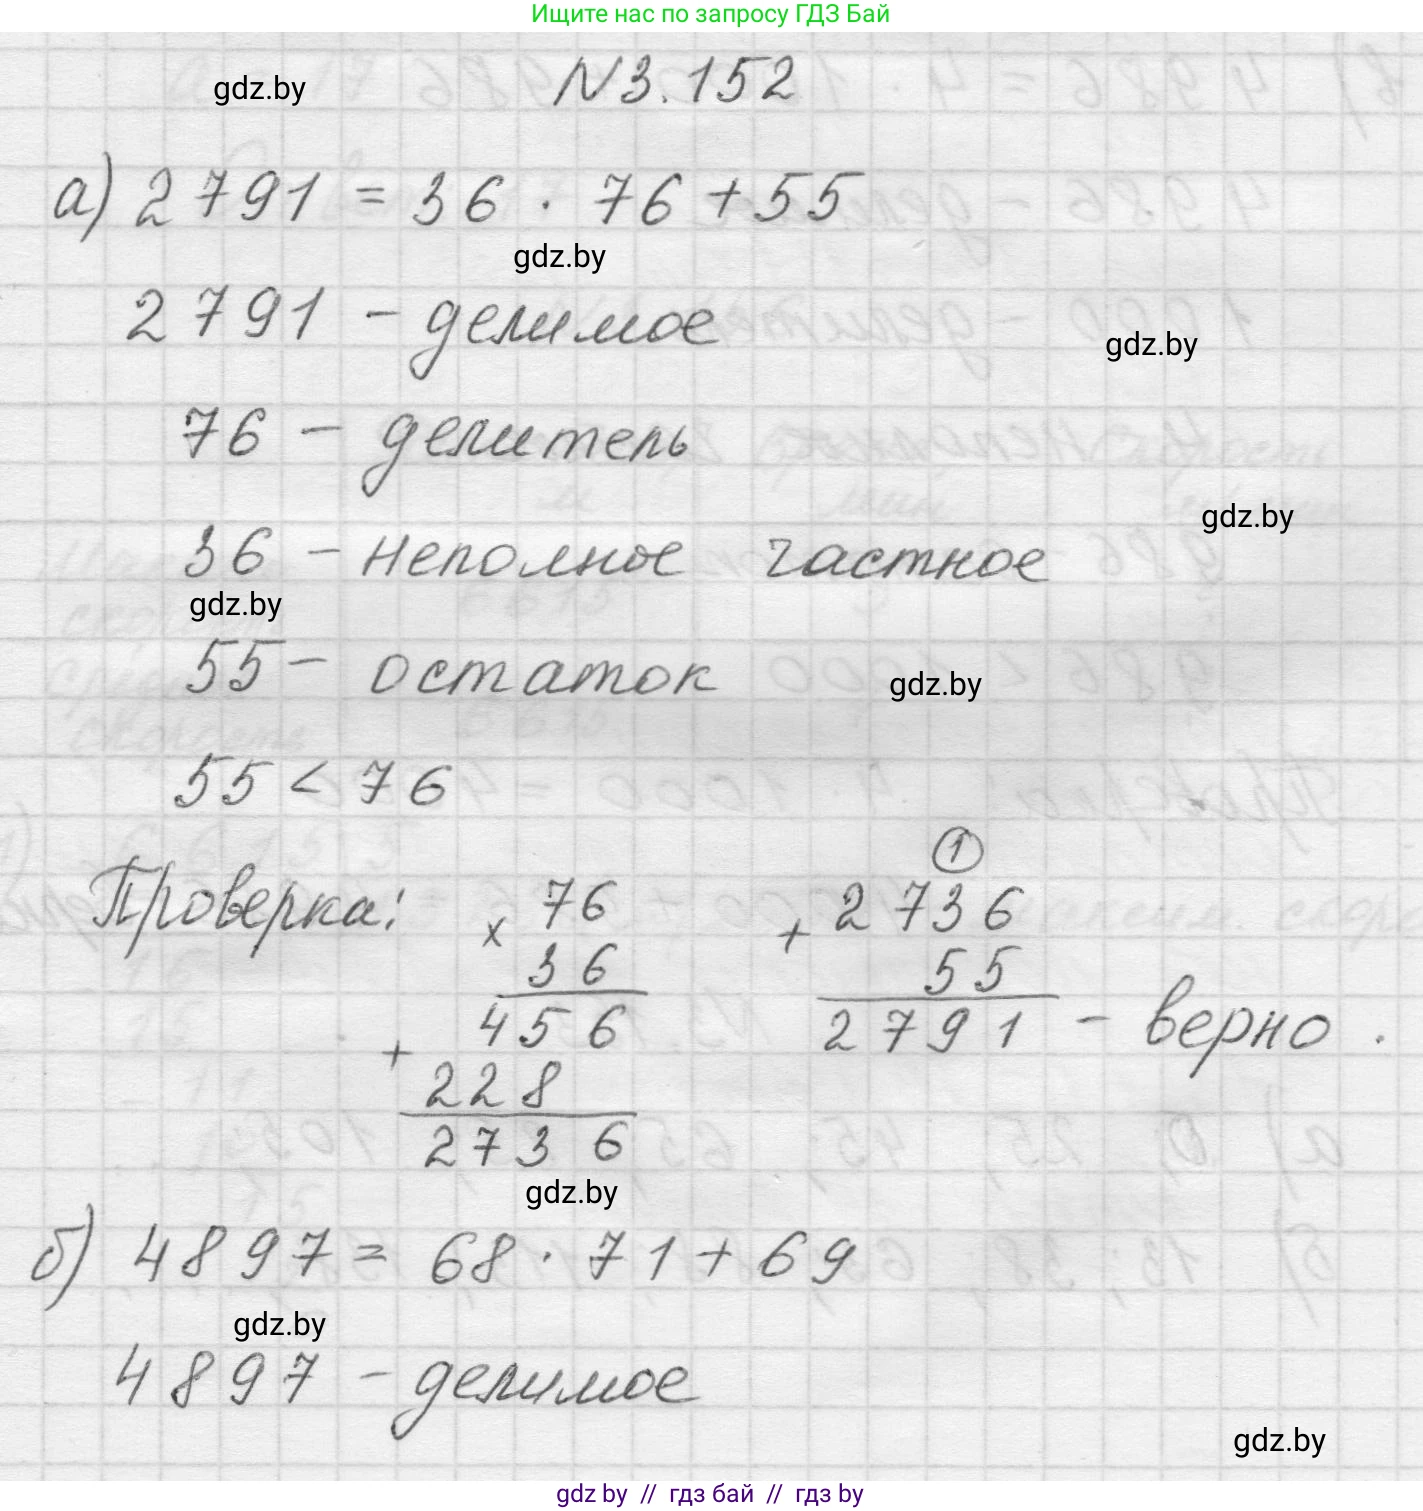 Ищите нас по запросу ГДЗ Бай
N3.152
gdz.by
а) 2791 = 36 · 76 + 55
gdz.by
2791 - делимое
gdz.by
76 - делитель
gdz.by
36 - неполное частное
gdz.by
55 - остаток
gdz.by
55 < 76
Проверка:
× 76
36
456
+
228
2736
1
+ 2736
55
2791 - верно.
gdz.by
б) 4897 = 68 · 71 + 69
gdz.by
4897 - делимое
gdz.by
gdz by // гдз бай // гдз by